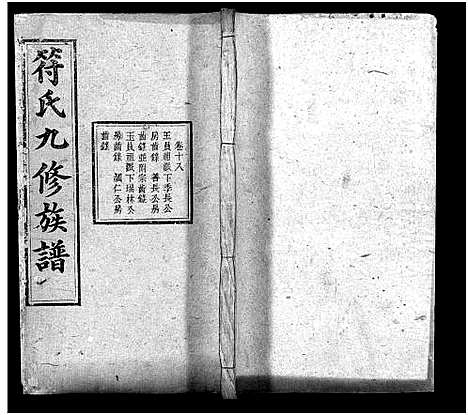 符氏九修族譜
卷十八
玉員祖嶽下季長公
房齒錄 善長公房
齒錄並附宗齒錄
玉員祖嶽下瑞林公
房齒錄 溫仁公房
齒錄